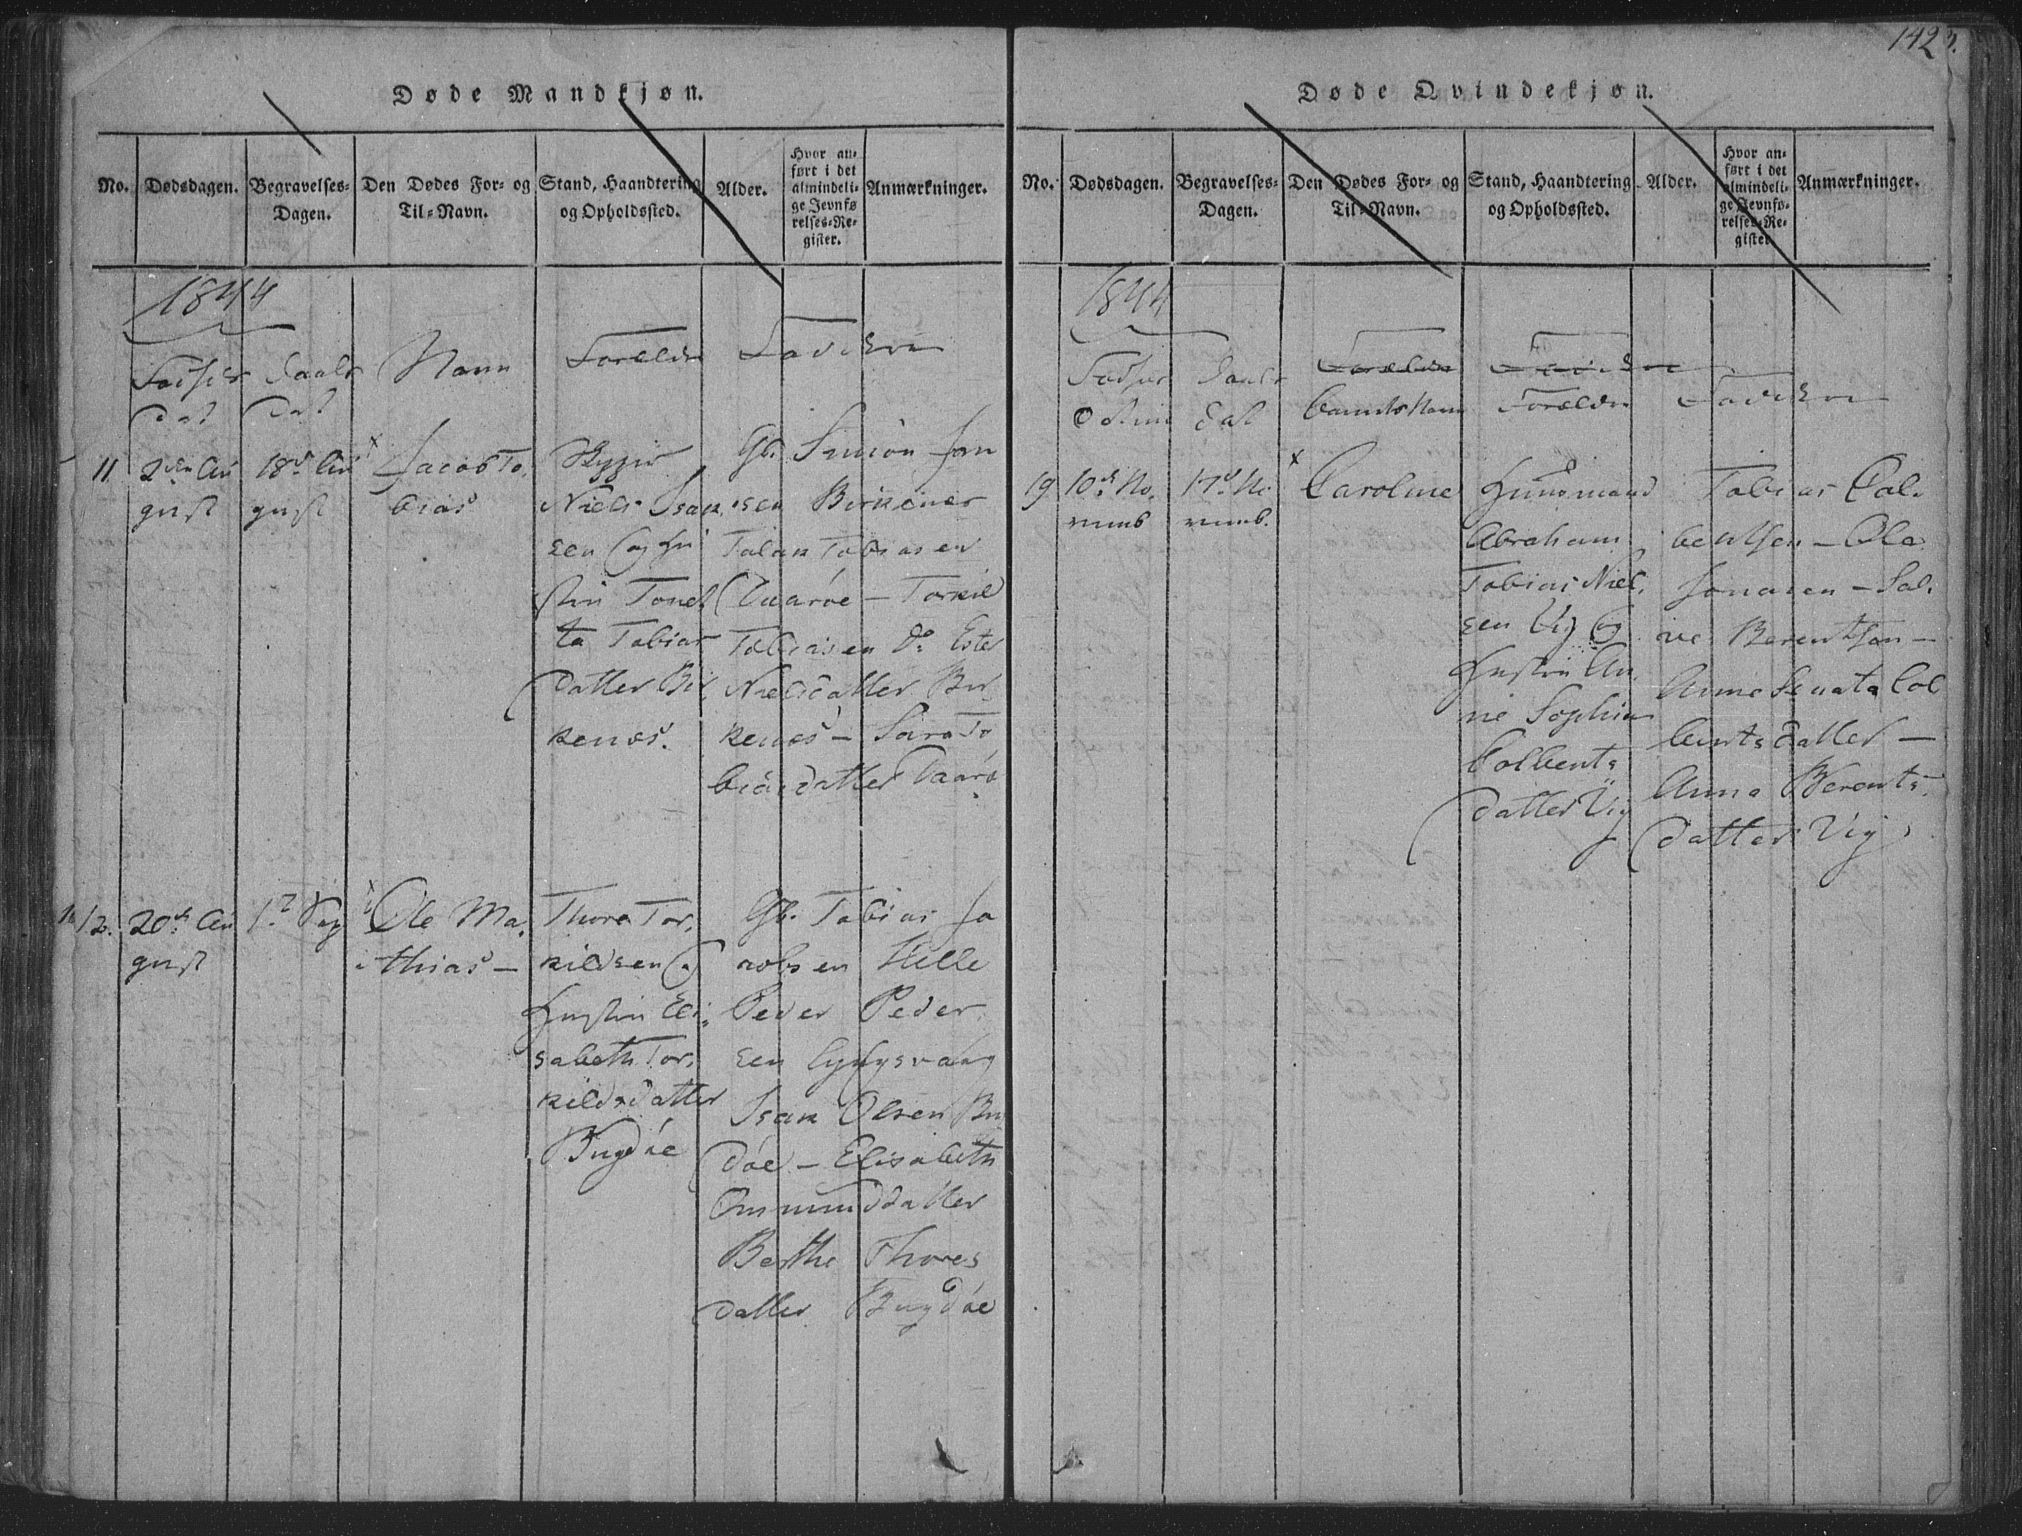 142
Døde Mandkjøn.
No.
Dødsdagen.
Begravelses-
Dagen.
Den Dødes For- og
Til-Navn.
Stand, Haandtering
og Opholdssted.
Alder.
Hvor an-
ført i det
almindeli-
ge Jevnfø
relses-Re-
gister.
Anmærkninger.
1844
Navn
Forældre
Faddere
11
2den Au
gust
18de Au
gust
Jacob To
bias
Niels Isak
sen og Hu
stru Tonet
ta Tobias
datter Bir
kenes.
Gb. Simon Jan
sen Birkenes
Tobiasen
Tobiasen do Ester
Nielsdatter Bir
kenes – Sara To
biasdatter
12.
20de Au
gust
1te Sep
Ole Ma
thias –
Thore Tor
kildsen og
Hustru Eli
sabeth Tor
kildsdatter
Bugdøe
Gb. Tobias Ja
cobsen Helle
Peder Peder
sen
Isak Olsen Bu
døe – Elisabeth
Ommundsdatter
Berthe Thores
datter Bugdøe
Døde Qvindekjøn.
No.
Dødsdagen.
Begravelses-
Dagen.
Den Dødes For- og
Til-Navn.
Stand, Haandtering
og Opholdssted.
Alder.
Hvor an-
ført i det
almindeli-
ge Jevnfø-
relses-Re-
gister.
Anmærkninger.
1844
Forældre
Faddere
Barnets Navn
Forældre
Faddere
19
10de No
vemb
17de No
vemb.
Caroline
Huusmand
Abraham
Tobias Niel
sen Vig og
Hustru An
ne Sophie
Colbents
datter Vig
Tobias Col
bentsen – Ole
Jonasen – Sal
ve Berentsen –
Anne Senata Col
bentsdatter –
Anna Berents
datter Vig